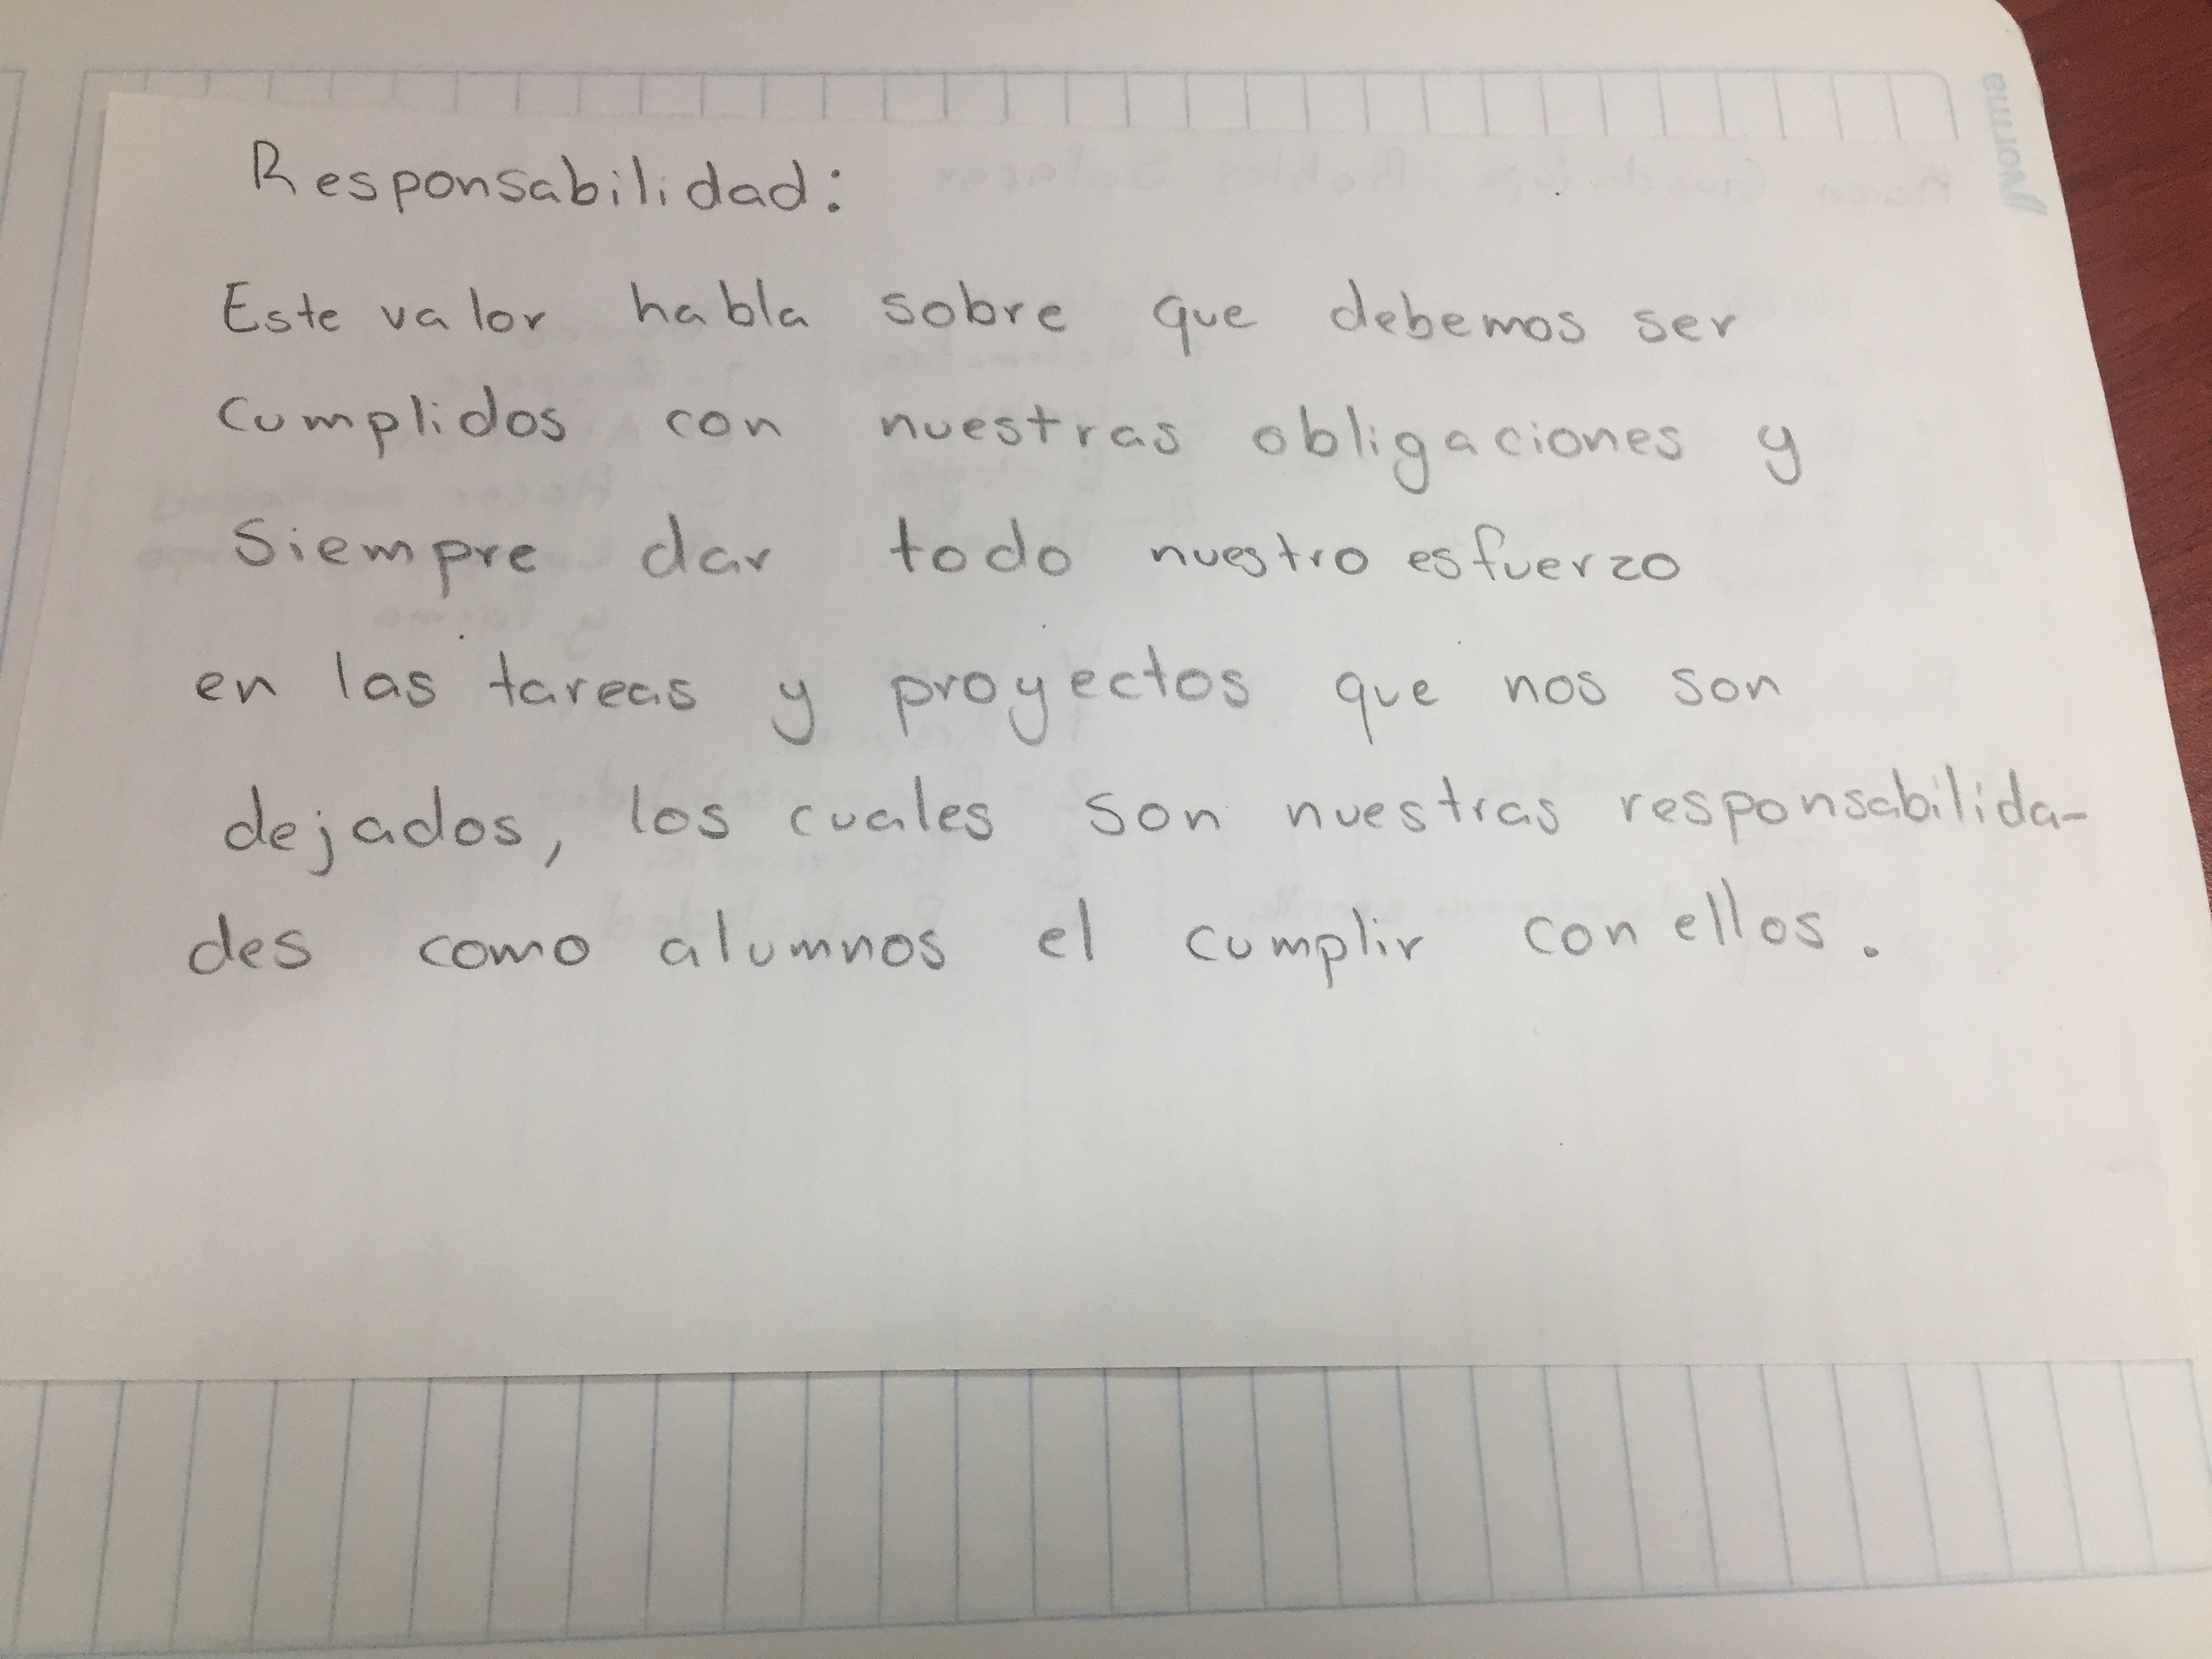 Responsabilidad:
Este valor habla sobre que debemos ser
cumplidos con nuestras obligaciones y
Siempre dar todo nuestro esfuerzo
en las tareas y proyectos que nos son
dejados, los cuales son nuestras responsabilida-
des como alumnos el cumplir con ellos.
Norma